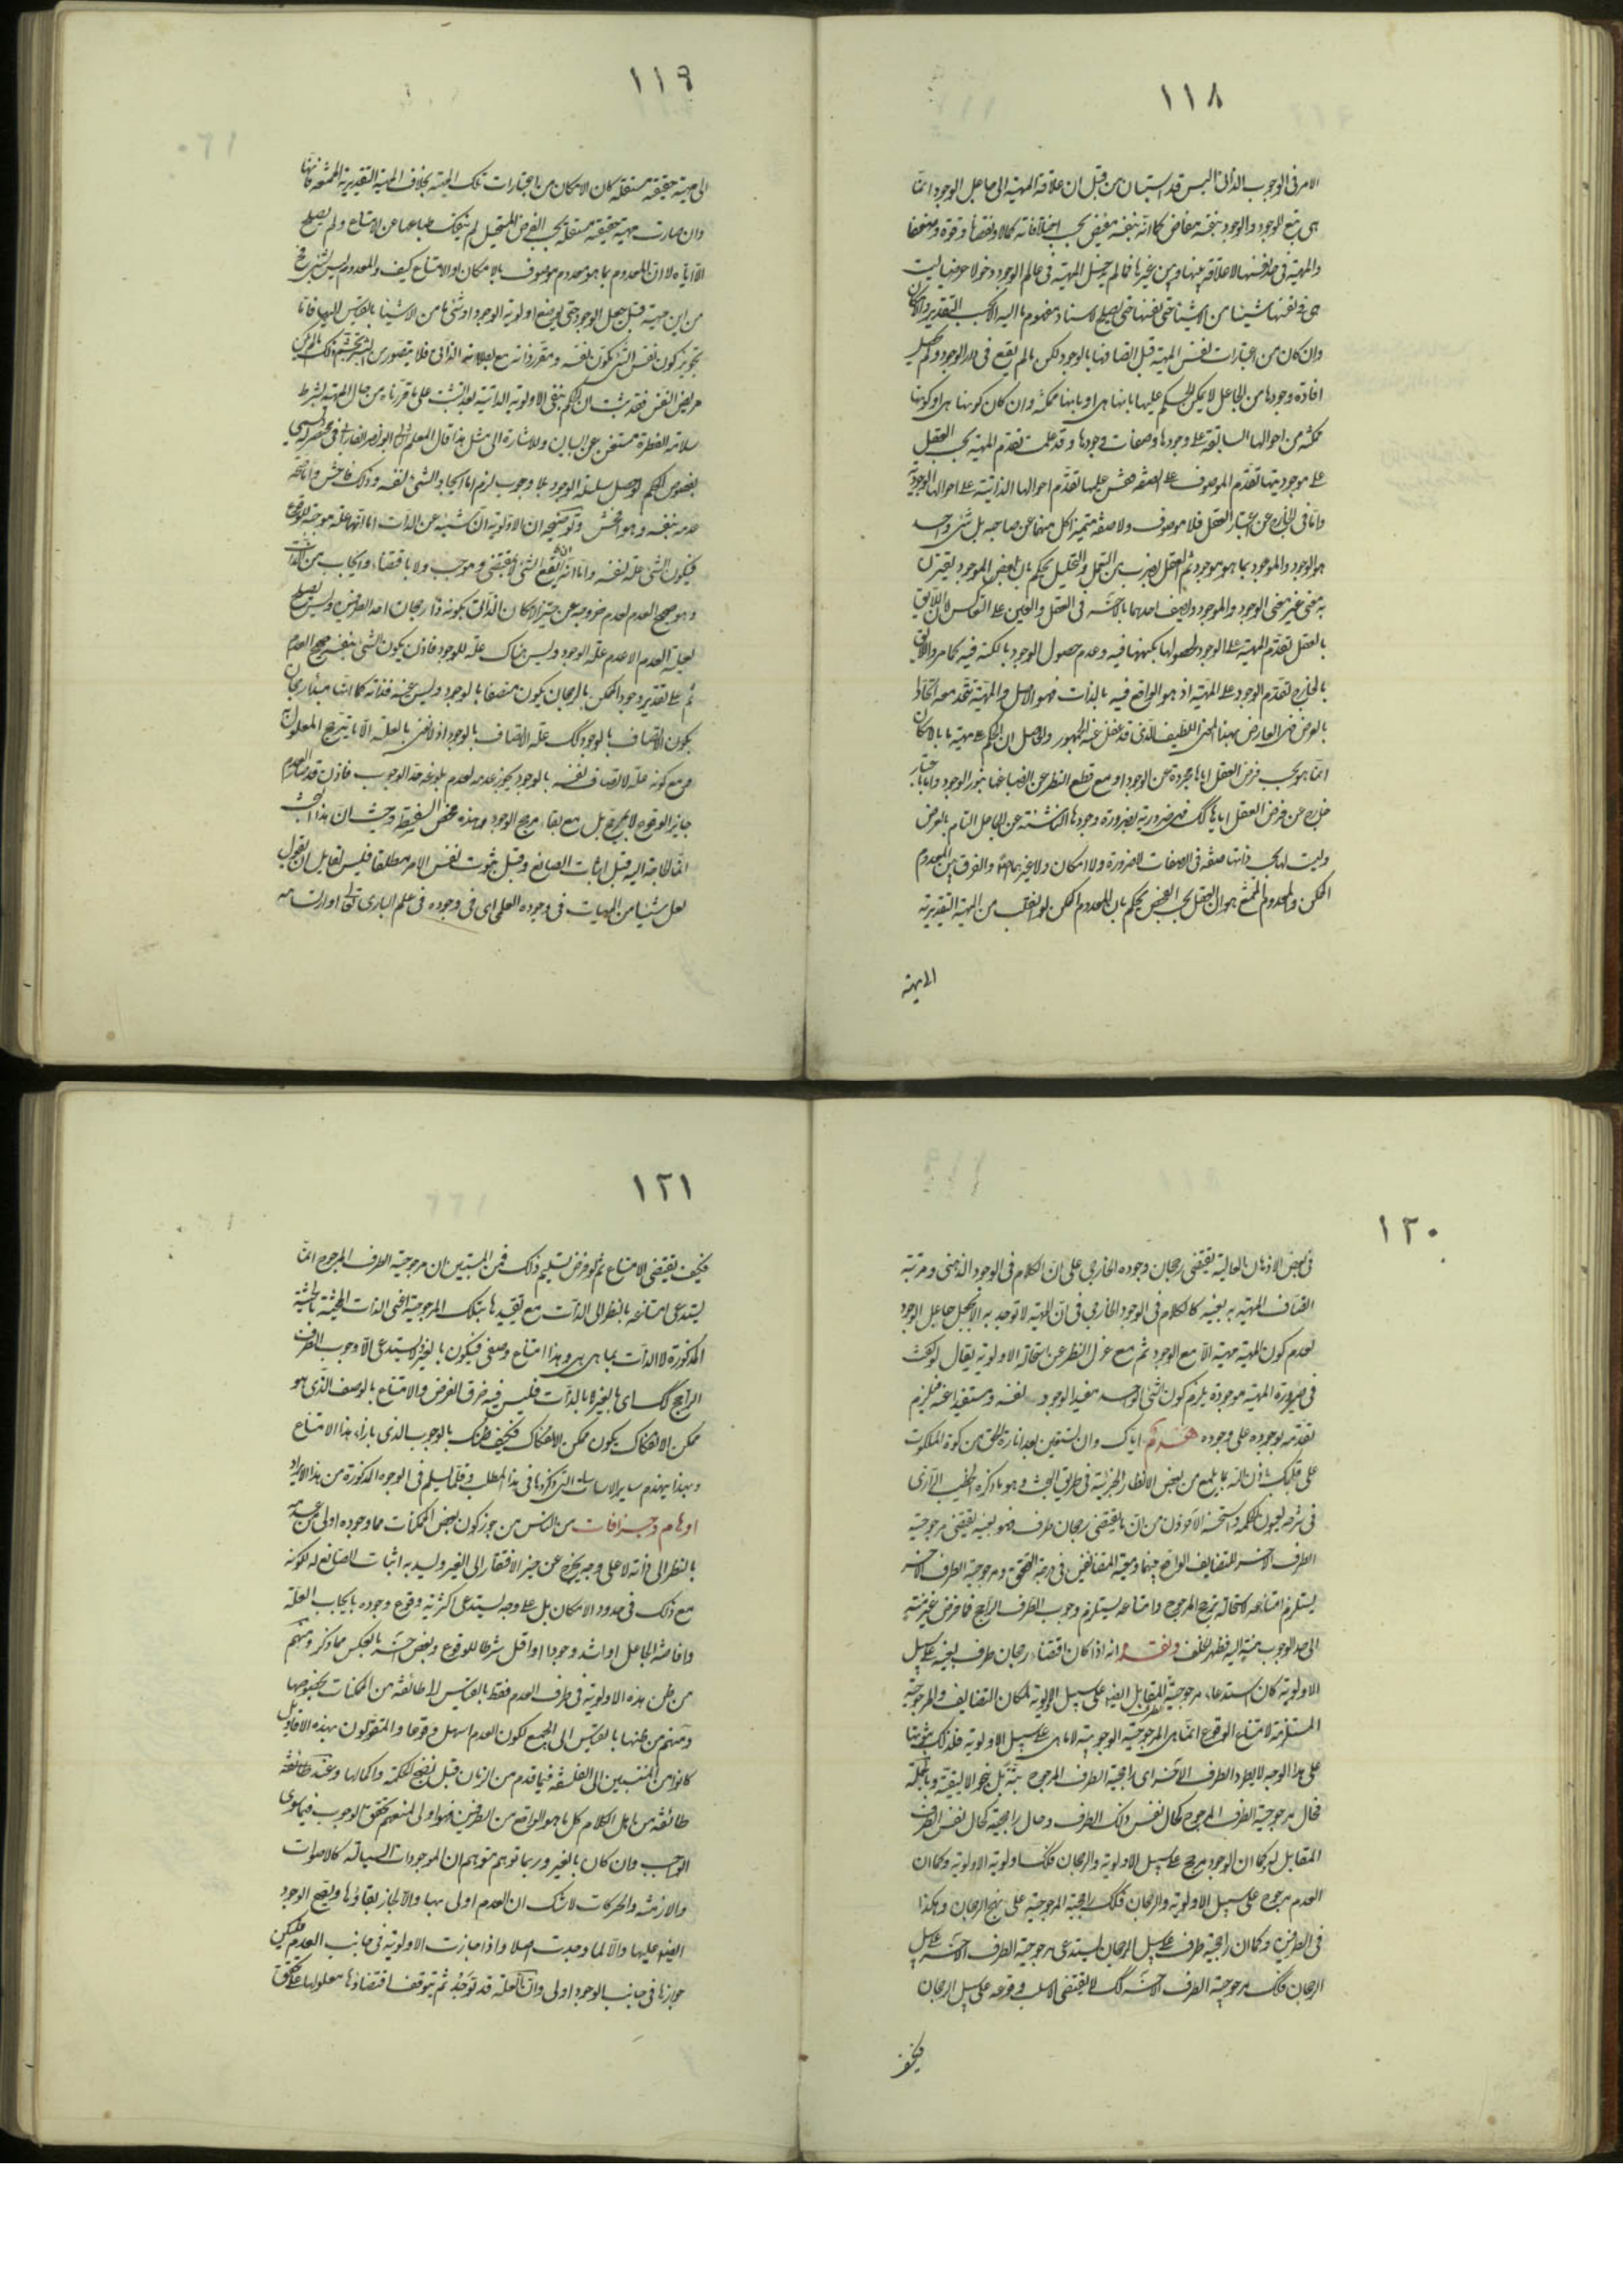 ١١٨
الامر فی الوجوب الذاتی الیس قد استبان من قبل ان علاقة المهیة الی جاعل الوجود انما
هی بتبع الوجود والوجود بنفسه مفاض کما انه بنفسه مفیض بحسب اختلافاته کمالا ونقصا وقوة وضعفا
والمهیة فی حد نفسها لا علاقة بینها وبین غیرها فما لم یدخل المهیة فی عالم الوجود دخولا عرضیا لیست
هی فی نفسها شیئا من الاشیاء حتی نفسها حتی یصلح لاسناد مفهوم ما الیها الا بحسب التقدیر والامکان
وان کان من اعتبارات نفس المهیة قبل اتصافها بالوجود لکن ما لم یقع فی دار الوجود ولم یحصل
افادة وجودها من الجاعل لا یمکن الحکم علیها بانها هی او بانها ممکنة وان کان کونها هی او کونها
ممکنة من احوالها السابقة علی وجودها وصفات وجودها وقد علمت تقدم المهیة بحسب العقل
علی موجودیتها تقدم الموصوف علی الصفة فقس علیها تقدم احوالها الذاتیة علی احوالها الوجودیة
واما فی الخارج عن اعتبار العقل فلا موصوف ولا صفة متمیزا کل منهما عن صاحبه بل شئ واحد
هو الوجود والموجود بما هو موجود ثم العقل بضرب من التعمل والتحلیل یحکم بان بعض الموجود یقترن
به معنی غیر معنی الوجود والموجود ویصف احدهما بالآخر فی العقل والعین علی التعاکس لان اللایق
بالعقل تقدم المهیة علی الوجود لحصولها بکنهها فیه وعدم حصول الوجود بالکنه فیه کما مر واللایق
بالخارج تقدم الوجود علی المهیة اذ هو الواقع فیه بالذات فهو الاصل والمهیة تتحد معه اتحادا
بالعرض فهی العارض بهذا المعنی اللطیف الذی قد غفل عنه الجمهور والحاصل ان الحکم علی مهیة ما بالامکان
انما هو بحسب فرض العقل ایاها مجردة عن الوجود او مع قطع النظر عن انصباغها بنور الوجود واما باعتبار
خارج عن فرض العقل ایاها کک فهی ضروریة بضرورة وجودها الناشئة عن الجاعل التام بالعرض
ولیست لها بحسب ذاتها صفة فی الصفات لا ضرورة ولا امکان ولا غیرهما اصلا والفرق بین المعدوم
الممکن والمعدوم الممتنع هو ان العقل بحسب الفحص یحکم بان المعدوم الممکن لو انقلب من المهیة التقدیریة
الی مهیة
١١٩
الی مهیة حقیقیة مستقلة کان الامکان من اعتبارات تلک المهیة بخلاف المهیة التقدیریة الممتنعة فانها
وان صارت مهیة حقیقیة مستقلة بحسب الفرض المستحیل لم ینفک طباعها عن الامتناع ولم یصلح
الا ایاه لا ان المعدوم بما هو معدوم موصوف بالامکان او الامتناع کیف والمعدوم لیس بشئ فح
من این مهیة قبل جعل الوجود حتی یوصف باولویة الوجود او شئ ما من الاشیاء بالقیاس الیها فاما
تجویز کون نفس الشئ مکون نفسه ومقرر ذاته مع بطلانه الذاتی فلا یتصور من البشر تجشم ذلک ما لم یکن
مریض النفس فقد ثبت ان الحکم بنفی الاولویة الذاتیة بعد التثبت علی ما قررناه من حال المهیة بشرط
سلامة الفطرة مستغن عن البیان ولاشارة الی مثل هذا قال المعلم الثانی ابو نصر الفارابی فی مختصر له یسمی
بفصوص الحکم لو حصل سلسلة الوجود بلا وجوب لزم اما ایجاد الشئ نفسه وذلک فاحش واما صحة
عدمه بنفسه وهو افحش وتوضیحه ان الاولویة الناشئة عن الذات اما انها علة موجبة للوقوع
فیکون الشئ علة لنفسه واما انه یقع الشئ لا بمقتض وموجب ولا باقتضاء وایجاب من الذات
وهو صحیح العدم لعدم خروجه عن حیز الامکان الذاتی بکونه ذا رجحان احد الطرفین ولیس یصلح
لعلیة العدم الا عدم علة الوجود ولیس هناک علة للوجود فاذن یکون الشئ بنفسه صحیح العدم
ثم علی تقدیر وجود الممکن بالرجحان یکون متصفا بالوجود ولیس عینه فذاته کما انها مبدأ رجحان
یکون الاتصاف بالوجود کک علة الاتصاف بالوجود اذ لا نعنی بالعلة الا ما یترجح المعلول به
ومع کونه علة لاتصاف نفسه بالوجود یجوز عدمه لعدم بلوغه حد الوجوب فاذن قد صار العدم
جایز الوقوع لا بمرجح بل مع بقاء مرجح الوجود وهذه محض السفسطة وحیث ان هذا البحث
انما الحاجة الیه قبل اثبات الصانع وقبل ثبوت نفس الامر مطلقا فلیس لقایل ان یقول
لعل شیئا من المهیات فی وجوده العلمی ای فی وجوده فی علم الباری تعالی او ارتسامه
١٢٠
فی بعض الاذهان العالیة یقتضی رجحان وجوده الخارجی علی ان الکلام فی الوجود الذهنی ومرتبة
اتصاف المهیة به بعینه کالکلام فی الوجود الخارجی فی ان المهیة لا توجد به الا بجعل جاعل الوجود
لعدم کون المهیة مهیة الا مع الوجود ثم مع عزل النظر عن استحالة الاولویة یقال لو کفت
فی صیرورة المهیة موجودة یلزم کون الشئ الواحد مفیدا لوجود نفسه ومستفیدا عنه فیلزم
تقدمه بوجوده علی وجوده هدم ایاک وان تستعین بعد انارة الحق من کوة الملکوت
علی قلبک باذن الله بما یلمع من بعض الانظار الجزئیة فی طریق البحث وهو ما ذکره الخطیب الرازی
فی شرحه لعیون الحکمة واستحسنه الآخرون من ان ما یقتضی رجحان طرف فهو بعینه یقتضی مرجوحیة
الطرف الاخر للتضایف الواقع بینهما ومعیة المتضایفین فی درجة التحقق ومرجوحیة الطرف الاخر
یستلزم امتناعه لاستحالة ترجیح المرجوح وامتناعه یستلزم وجوب الطرف الراجح فما فرض غیر منته
الی حد الوجوب منته الیه فظهر الخلف ونقده انه اذا کان اقتضاء رجحان طرف بعینه علی سبیل
الاولویة کان استدعاء مرجوحیة الطرف المقابل ایضا علی سبیل الاولویة لمکان التضایف والمرجوحیة
المستلزمة لامتناع الوقوع انما هی المرجوحیة الوجوبیة لا ما هی علی سبیل الاولویة فلذلک ثبوتها
علی هذا الوجه لا یطرد الطرف الآخر ای راجحیة الطرف المرجوح بتة بل بنحو الالیقیة وبالجملة
فحال مرجوحیة الطرف المرجوح کحال نفس ذلک الطرف وحال راجحیته کحال نفس الطرف
المقابل له فکما ان الوجود یترجح علی سبیل الاولویة والرجحان فکذا اولویة الاولویة وکما ان
العدم مرجوح علی سبیل الاولویة والرجحان فکک راجحیة المرجوحیة علی نهج الرجحان وهکذا
فی الطرفین وکما ان راجحیة طرف علی سبیل الرجحان یستدعی مرجوحیة الطرف الآخر علی سبیل
الرجحان فکک مرجوحیة الطرف الآخر کک لا یقتضی الا سلب وقوعه علی سبیل الرجحان
فکیف
١٢١
فکیف یقتضی الامتناع ثم لو فرض تسلیم ذلک فمن المستبین ان مرجوحیة الطرف المرجوح انما
یستدعی امتناعه بالنظر الی الذات مع تقییدها بتلک المرجوحیة اعنی الذات المحیثة بالحیثیة
المذکورة لا الذات بما هی هی وهذا امتناع وصفی فیکون بالغیر لا یستدعی الا وجوب الطرف
الراجح کک ای بالغیر لا بالذات فلیس فیه خرق الفرض والامتناع بالوصف الذی هو
ممکن الانفکاک یکون ممکن الانفکاک فکیف ظنک بالوجوب الذی بازاء هذا الامتناع
وبهذا ینهدم سایر الاساسات التی ذکروها فی هذا المطلب وقلما یسلم فی الوجوه المذکورة من هذا الایراد
اوهام وجزافات من الناس من جوز کون بعض الممکنات مما وجوده اولی من عدمه
بالنظر الی ذاته لا علی وجه یخرج عن حیز الافتقار الی الغیر ولیسد به اثبات الصانع له لکونه
مع ذلک فی حدود الامکان بل علی وجه یستدعی اکثریة وقوع وجوده بایجاب العلة
وافاضة الجاعل او اشد وجودا او اقل شرطا للوقوع وبعض آخر بالعکس مما ذکر ومنهم
من ظن هذه الاولویة فی طرف العدم فقط بالقیاس الی طائفة من الممکنات بخصوصها
ومنهم من ظنها بالقیاس الی الجمیع لکون العدم اسهل وقوعا والمتقولون بهذه الاقاویل
کانوا من المنتسبین الی الفلسفة فیما قدم من الزمان قبل نضج الحکمة واکمالها وعند طائفة
طائفة من اهل الکلام کل ما هو الواقع من الطرفین فهو اولی لمنعهم تحقق الوجوب فیما سوی
الواجب وان کان بالغیر وربما توهم متوهم ان الموجودات السیالة کالاصوات
والازمنة والحرکات لا شک ان العدم اولی بها والا لجاز بقاؤها ویصح الوجود
ایضا علیها والا لما وجدت اصلا واذا جازت الاولویة فی جانب العدم فلیکن
جوازها فی جانب الوجود اولی وان العلة قد توجد ثم یتوقف اقتضاؤها معلولها علی تحقق